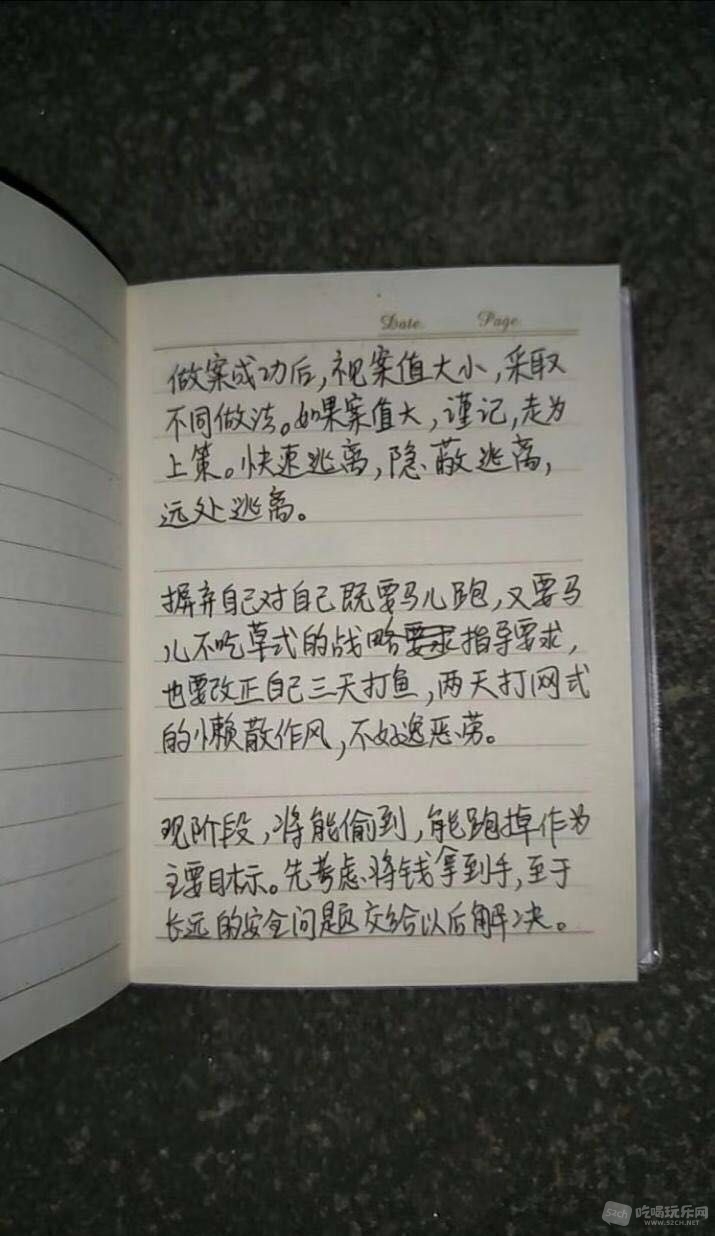 Date Page
做案成功后，视案值大小，采取
不同做法。如果案值大，谨记，走为
上策。快速逃离，隐蔽逃离，
远处逃离。
摒弃自己对自己既要马儿跑，又要马
儿不吃草式的战略要求指导要求，
也要改正自己三天打鱼，两天打网式
的懒散作风，不好逸恶劳。
现阶段，将能偷到，能跑掉作为
主要目标。先考虑将钱拿到手，至于
长远的安全问题交给以后解决。
szch 吃喝玩乐网
WWW.SZCH.NET